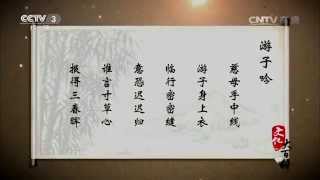 CCTV 3
CNTV
游子吟
慈母手中线
游子身上衣
临行密密缝
意恐迟迟归
谁言寸草心
报得三春晖
文化